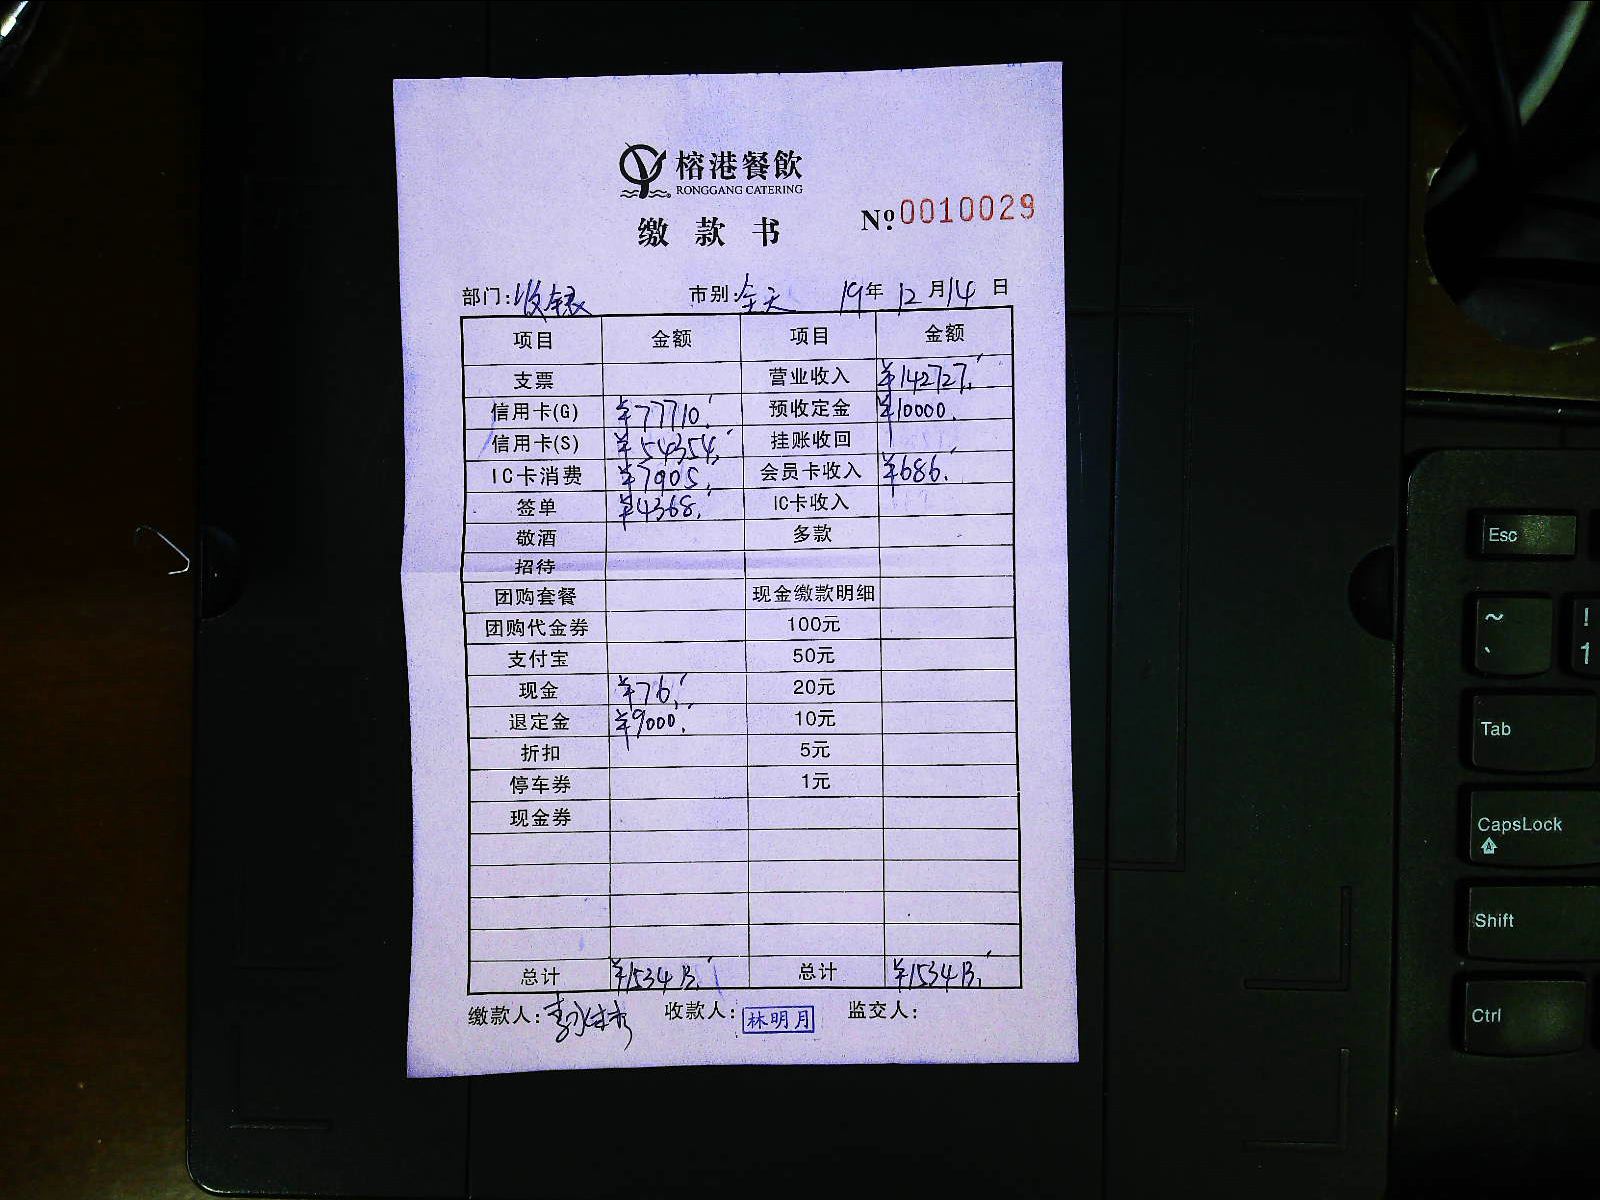 榕港餐飲
RONGGANG CATERING
缴款书
№ 0010029
部门: 收银 市别: 全天 19年12月14日
项目 金额 项目 金额
支票 营业收入 ¥142727.
信用卡(G) ¥77710. 预收定金 ¥10000.
信用卡(S) ¥54354. 挂账收回
IC卡消费 ¥7905. 会员卡收入 ¥686.
签单 ¥4368. IC卡收入
敬酒 多款
招待
团购套餐 现金缴款明细
团购代金券 100元
支付宝 50元
现金 ¥76. 20元
退定金 ¥9000. 10元
折扣 5元
停车券 1元
现金券
总计 ¥153413. 总计 ¥153413.
缴款人: 收款人: 林明月 监交人:
Esc
~ !
` 1
Tab
CapsLock
Shift
Ctrl